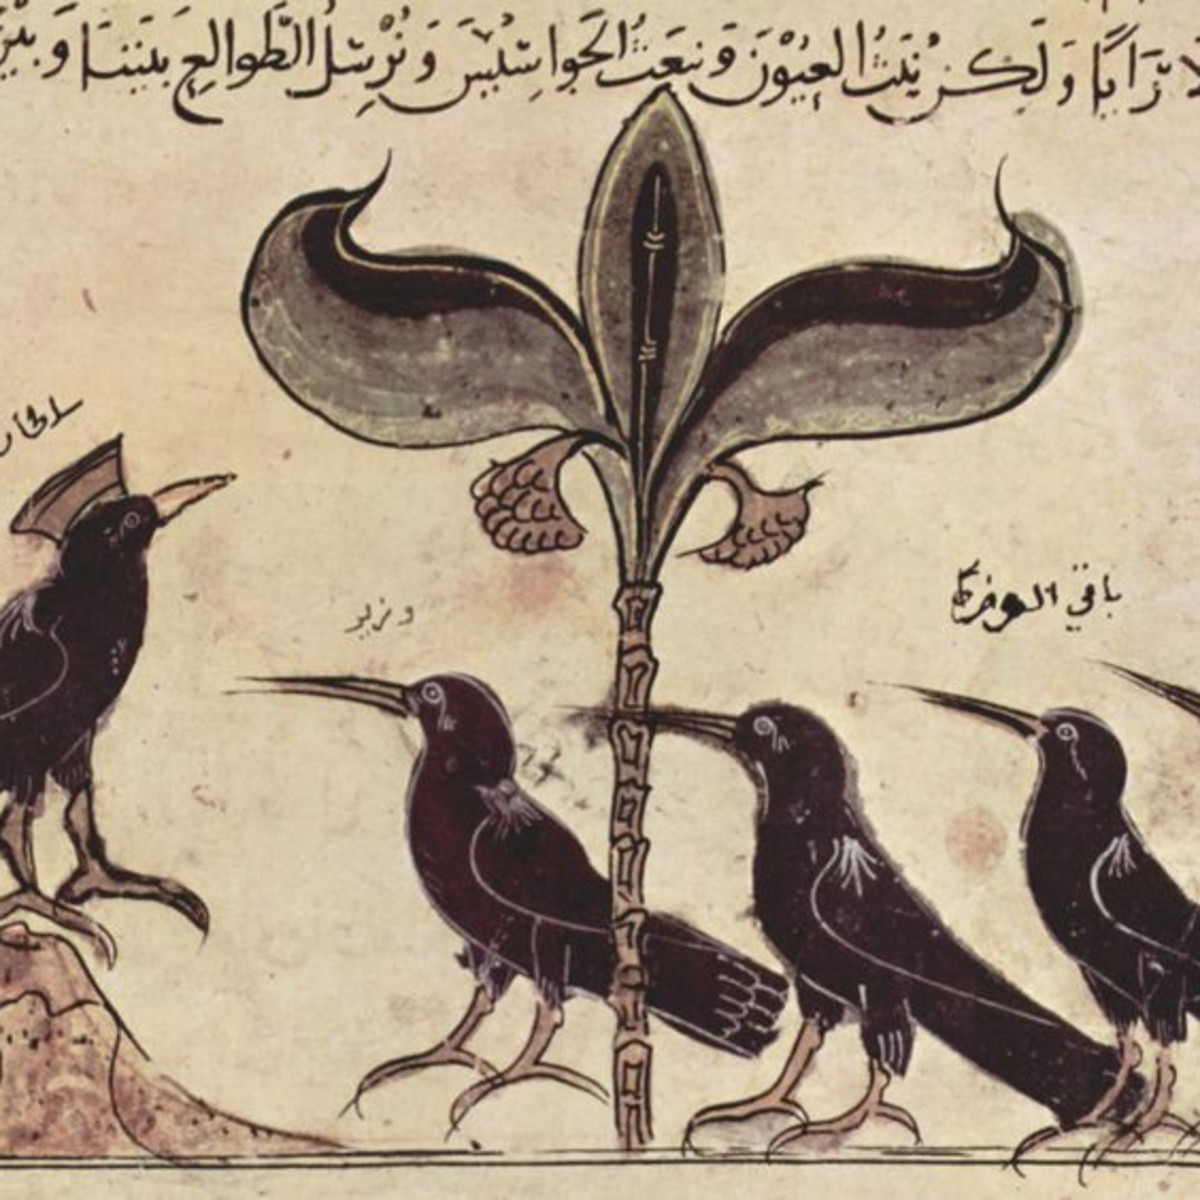 وَلَكِن نَبُثُّ العُيُوْنَ وَنبعَثُ الجَوَاسِيْسَ وَنُرْسِلُ الطَّوالِعِ بَيننَا وَبين
وزير
باقي الوزرا